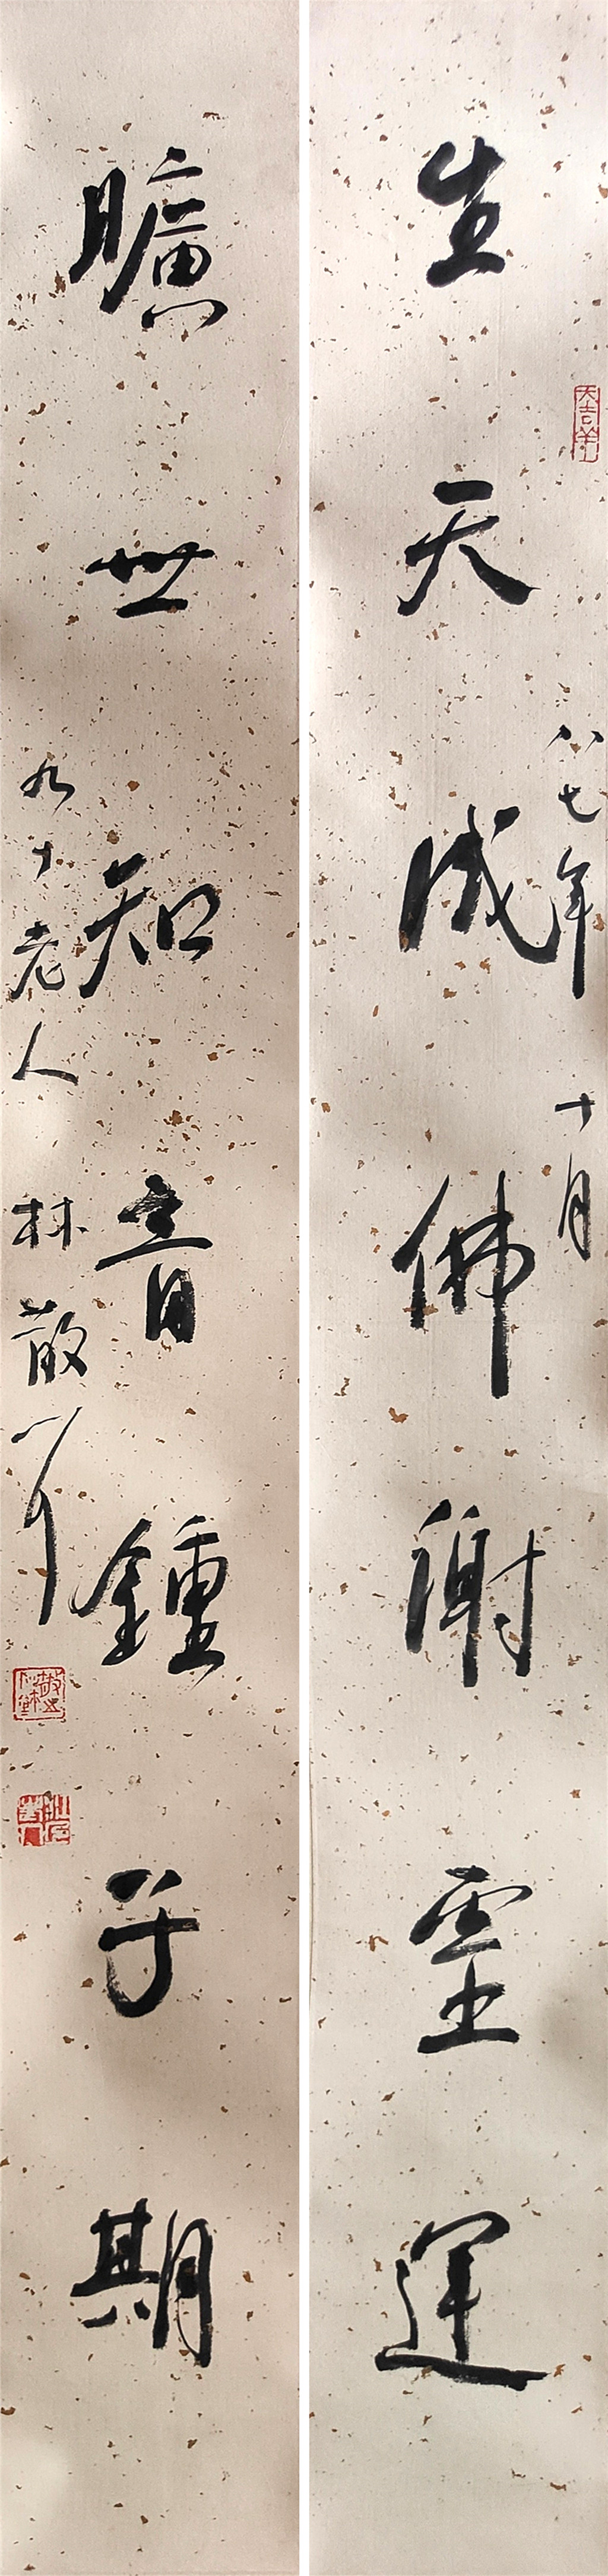 八七年十月
生天成佛谢靈運
曠世知音鍾子期
九十老人林散耳